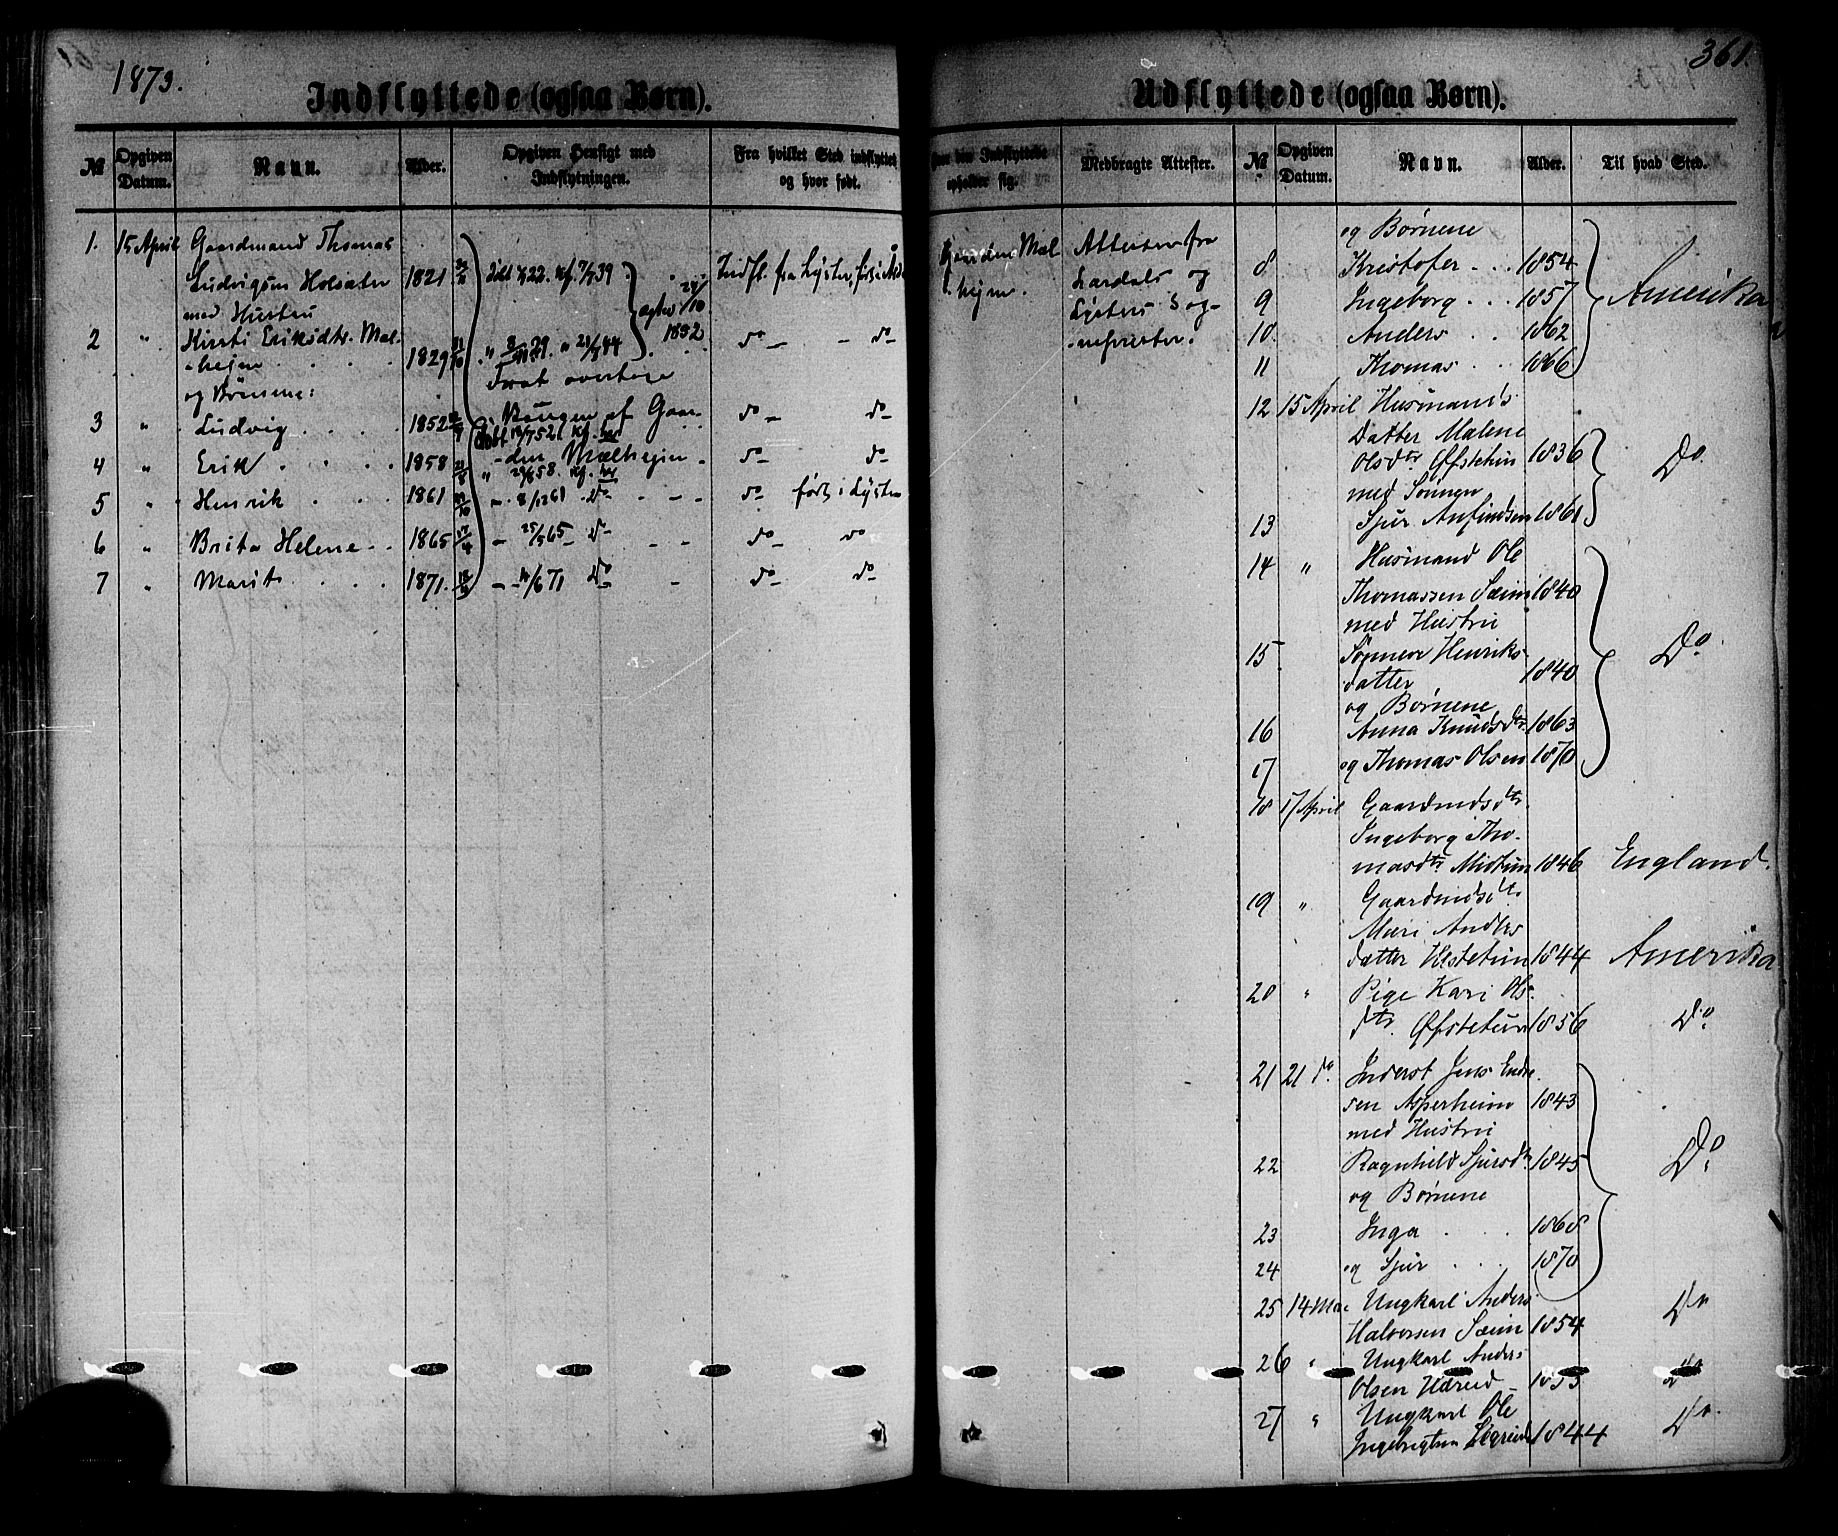 1873.
Indflyttede (ogsaa Børn).
№ Opgiven Datum. Navn. Alder. Opgiven Hensigt med Indflytningen. Fra hvilket Sted indflyttet og hvor født.
1. 15 April Gaardmand Thomas
Ludvigsen Holsæter 1821 døbt 22. kf. 7/7 39 Indfl. fra Lyster,
med Hustru
2 " Kirsti Eriksdtr. Mal-
-hejm 1829 " 29. " 44 1852 do - - do
og Børnene: samt overtage
3 " Ludvig 1852 Brugen af Gaar- do - do
4 " Erik 1858 -den Mælhejm do - do
5 " Henrik 1861 - 8/12 61 do - do født i Lyster
6 " Brita Helene 1865 - 25/5 65 do - do - do
7 " Marit 1871. - 11/6 71 do - do do
361.
Udflyttede (ogsaa Børn).
Hvor den Indflyttede opholder sig. Medbragte Attester. № Opgiven Datum. Navn. Alder. Til hvad Sted.
Gaarden Mal-
hejm.
Attester fra
Lærdals og
Lysters Sog-
-nepræster.
og Børnene
8 Kristofer 1854
9 Ingeborg 1857 Amerika
10. Anders 1862
11 Thomas 1866
12 15 April Husmands
Datter Malene
Olsdtr Øfstetun 1836 Do
med Sønnen
13 Sjur Anfindsen 1861
14 " Husmand Ole
Thomassen Sæim 1840
med Hustru
15 Synneve Henriks- Do
datter 1840
og Børnene
16 Anna Knudsdtr 1863
17 og Thomas Olsen 1870
18 17 April Gaardmdsdtr
Ingeborg Tho-
masdtr Midtun 1846 England.
19 " Gaardmdsdtr
Mari Anders
datter Hestetun 1844 Amerika
20 " Pige Kari Ols-
dtr. Øfstetun 1856 Do
21 21 do Inderst Jens Endre
sen Asperheim 1843
med Hustru
22 Ragnhild Sjursdtr 1845 Do
og Børnene
23 Inga 1868
24 og Sjur 1870
25 14 Mai Ungkarl Anders
Halvorsen Sæim 1854 Do
26 " Ungkarl Anders
Olsen do
27 " Ungkarl Ole
Ingebrigtsen 1844 Do